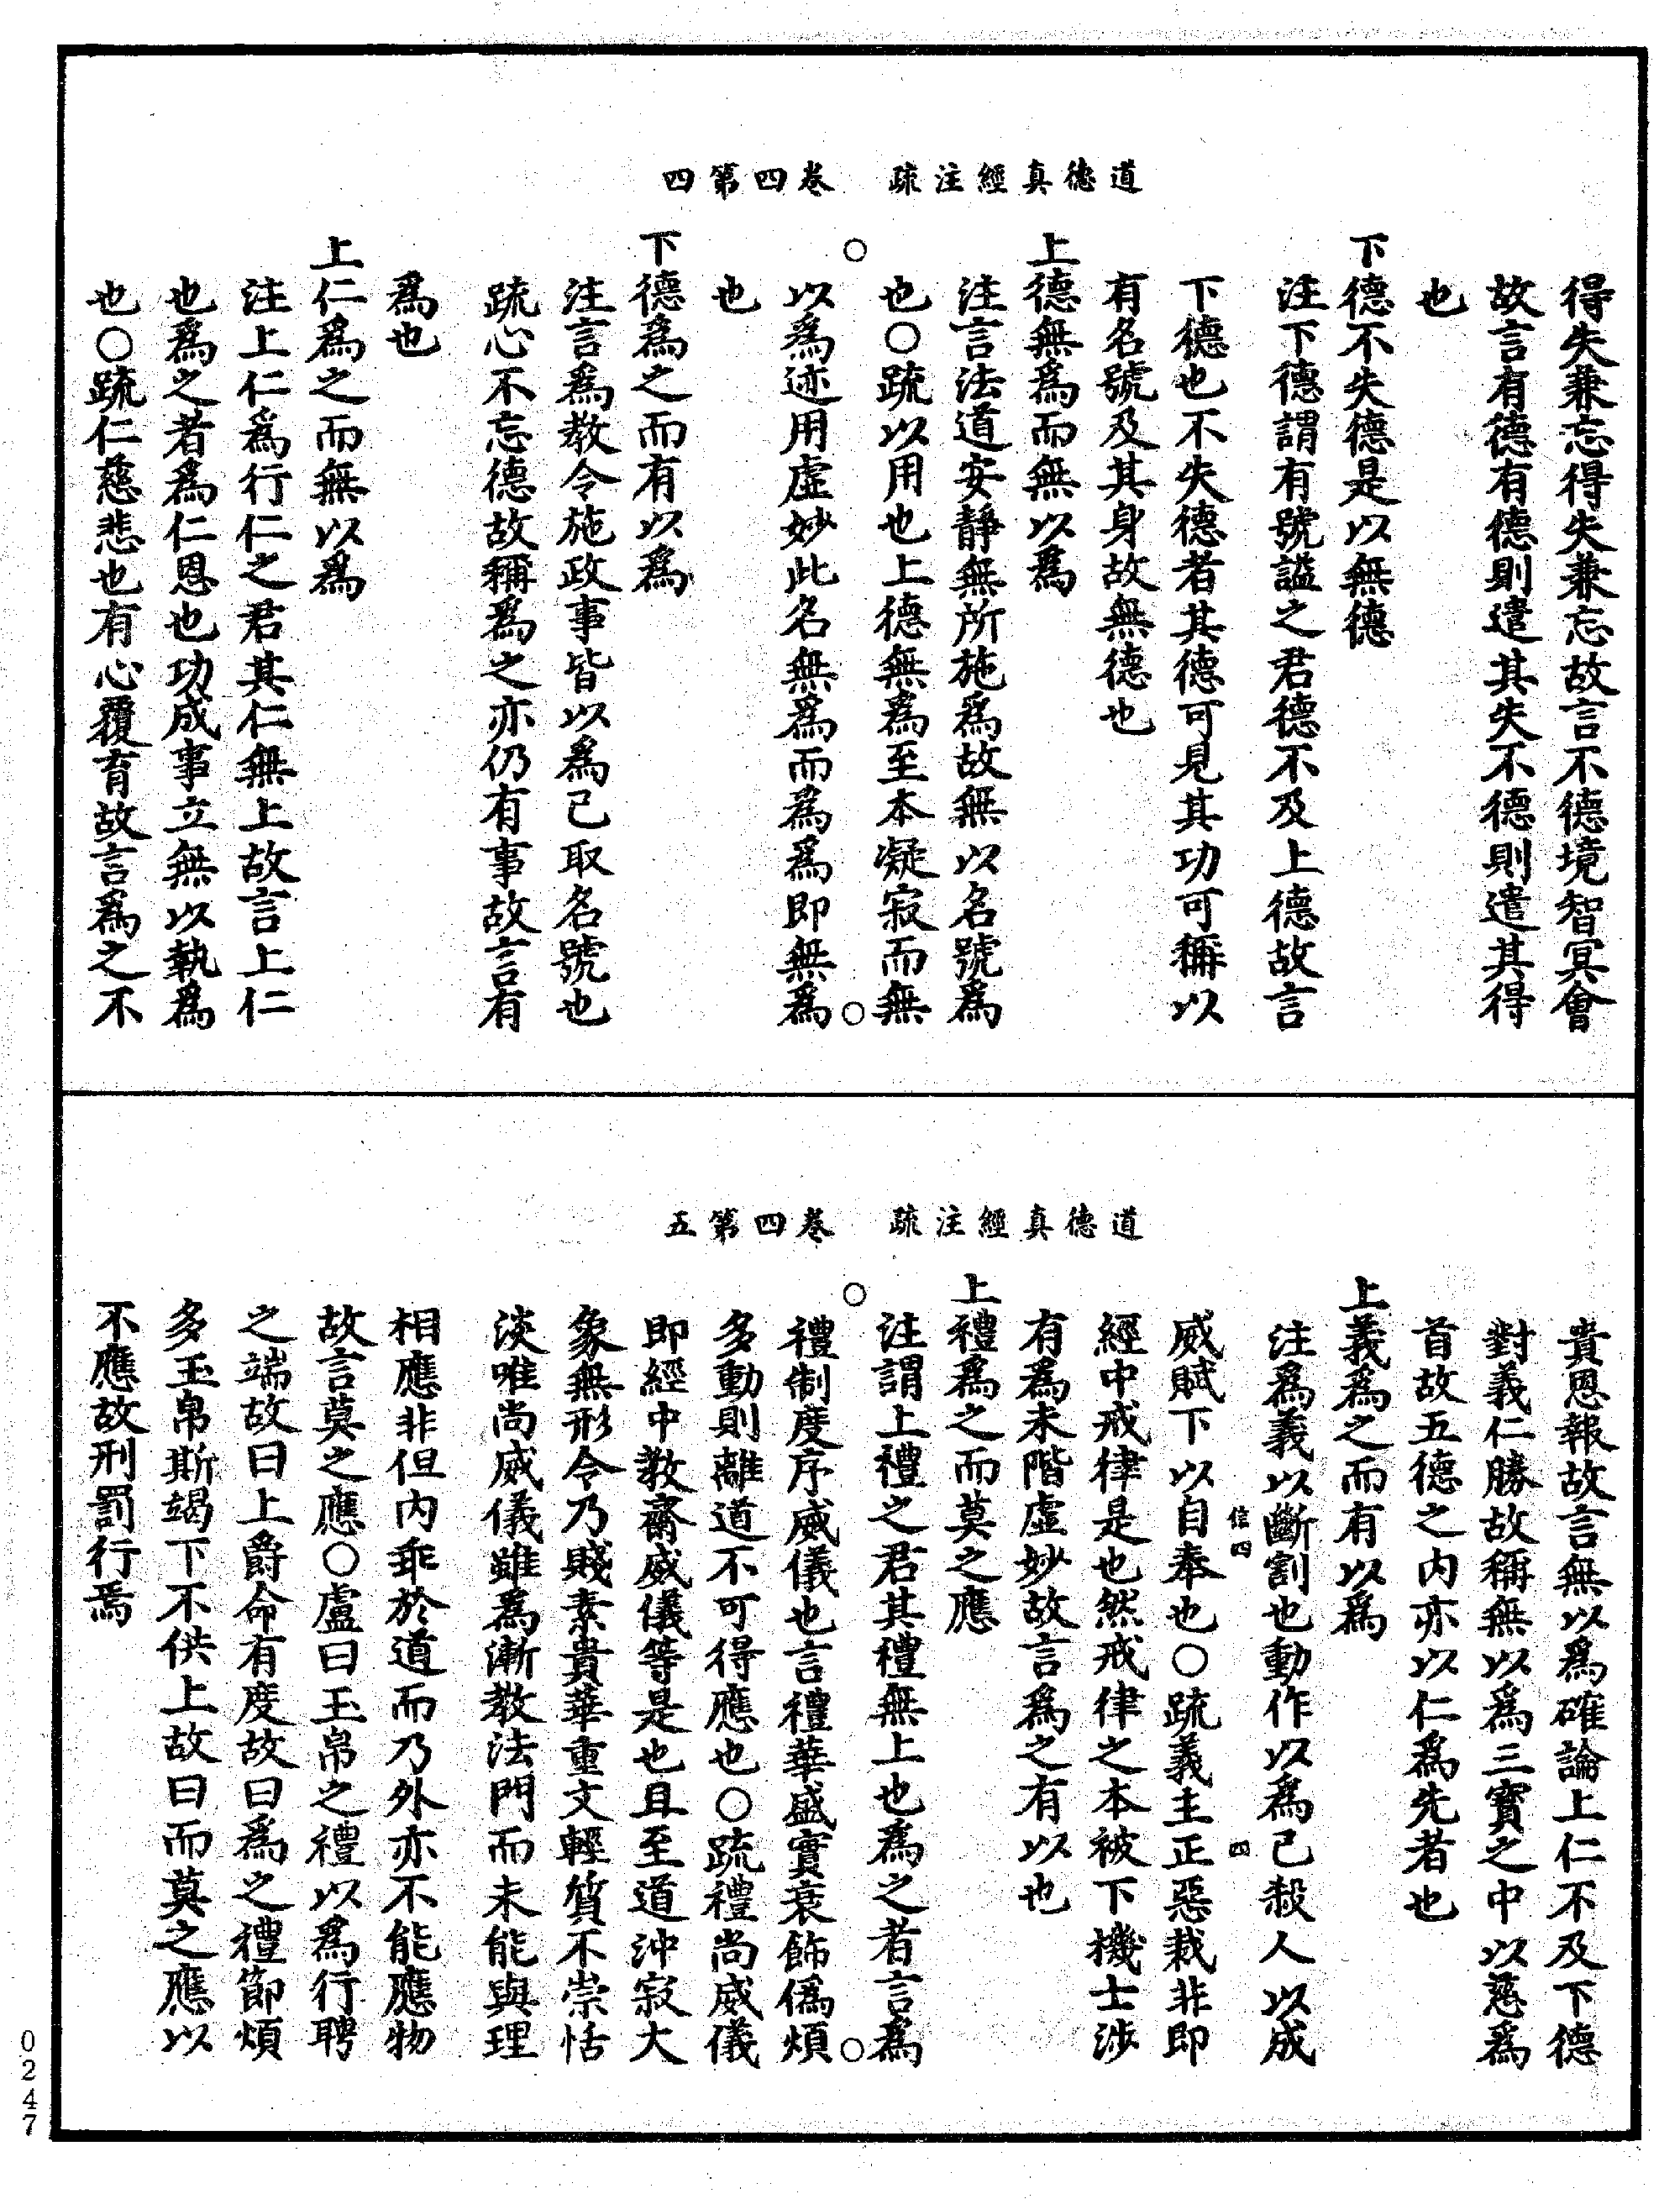 道德真經注疏 卷四第四
得失兼忘得失兼忘故言不德境智冥會
故言有德有德則遣其失不德則遣其得
也
下德不失德是以無德
注下德謂有號謚之君德不及上德故言
下德也不失德者其德可見其功可稱以
有名號及其身故無德也
上德無爲而無以爲
注言法道安靜無所施爲故無以名號爲
也○疏以用也上德無爲至本凝寂而無
以爲迹用虛妙此名無爲而爲爲即無爲
也
下德爲之而有以爲
注言爲教令施政事皆以爲己取名號也
疏心不忘德故稱爲之亦仍有事故言有
爲也
上仁爲之而無以爲
注上仁爲行仁之君其仁無上故言上仁
也爲之者爲仁恩也功成事立無以執爲
也○疏仁慈悲也有心覆育故言爲之不
道德真經注疏 卷四第五
貴恩報故言無以爲確論上仁不及下德
對義仁勝故稱無以爲三寶之中以慈爲
首故五德之内亦以仁爲先者也
上義爲之而有以爲
注爲義以斷割也動作以爲己殺人以成
信四 四
威賦下以自奉也○疏義主正惡裁非即
經中戒律是也然戒律之本被下機士涉
有爲未階虛妙故言爲之有以也
上禮爲之而莫之應
注謂上禮之君其禮無上也爲之者言爲
禮制度序威儀也言禮華盛實衰飾僞煩
多動則離道不可得應也○疏禮尚威儀
即經中教齋威儀等是也且至道沖寂大
象無形令乃賤素貴華重文輕質不崇恬
淡唯尚威儀雖爲漸教法門而未能與理
相應非但内乖於道而乃外亦不能應物
故言莫之應○盧曰玉帛之禮以爲行聘
之端故曰上爵命有度故曰爲之禮節煩
多玉帛斯竭下不供上故曰而莫之應以
不應故刑罰行焉
0247